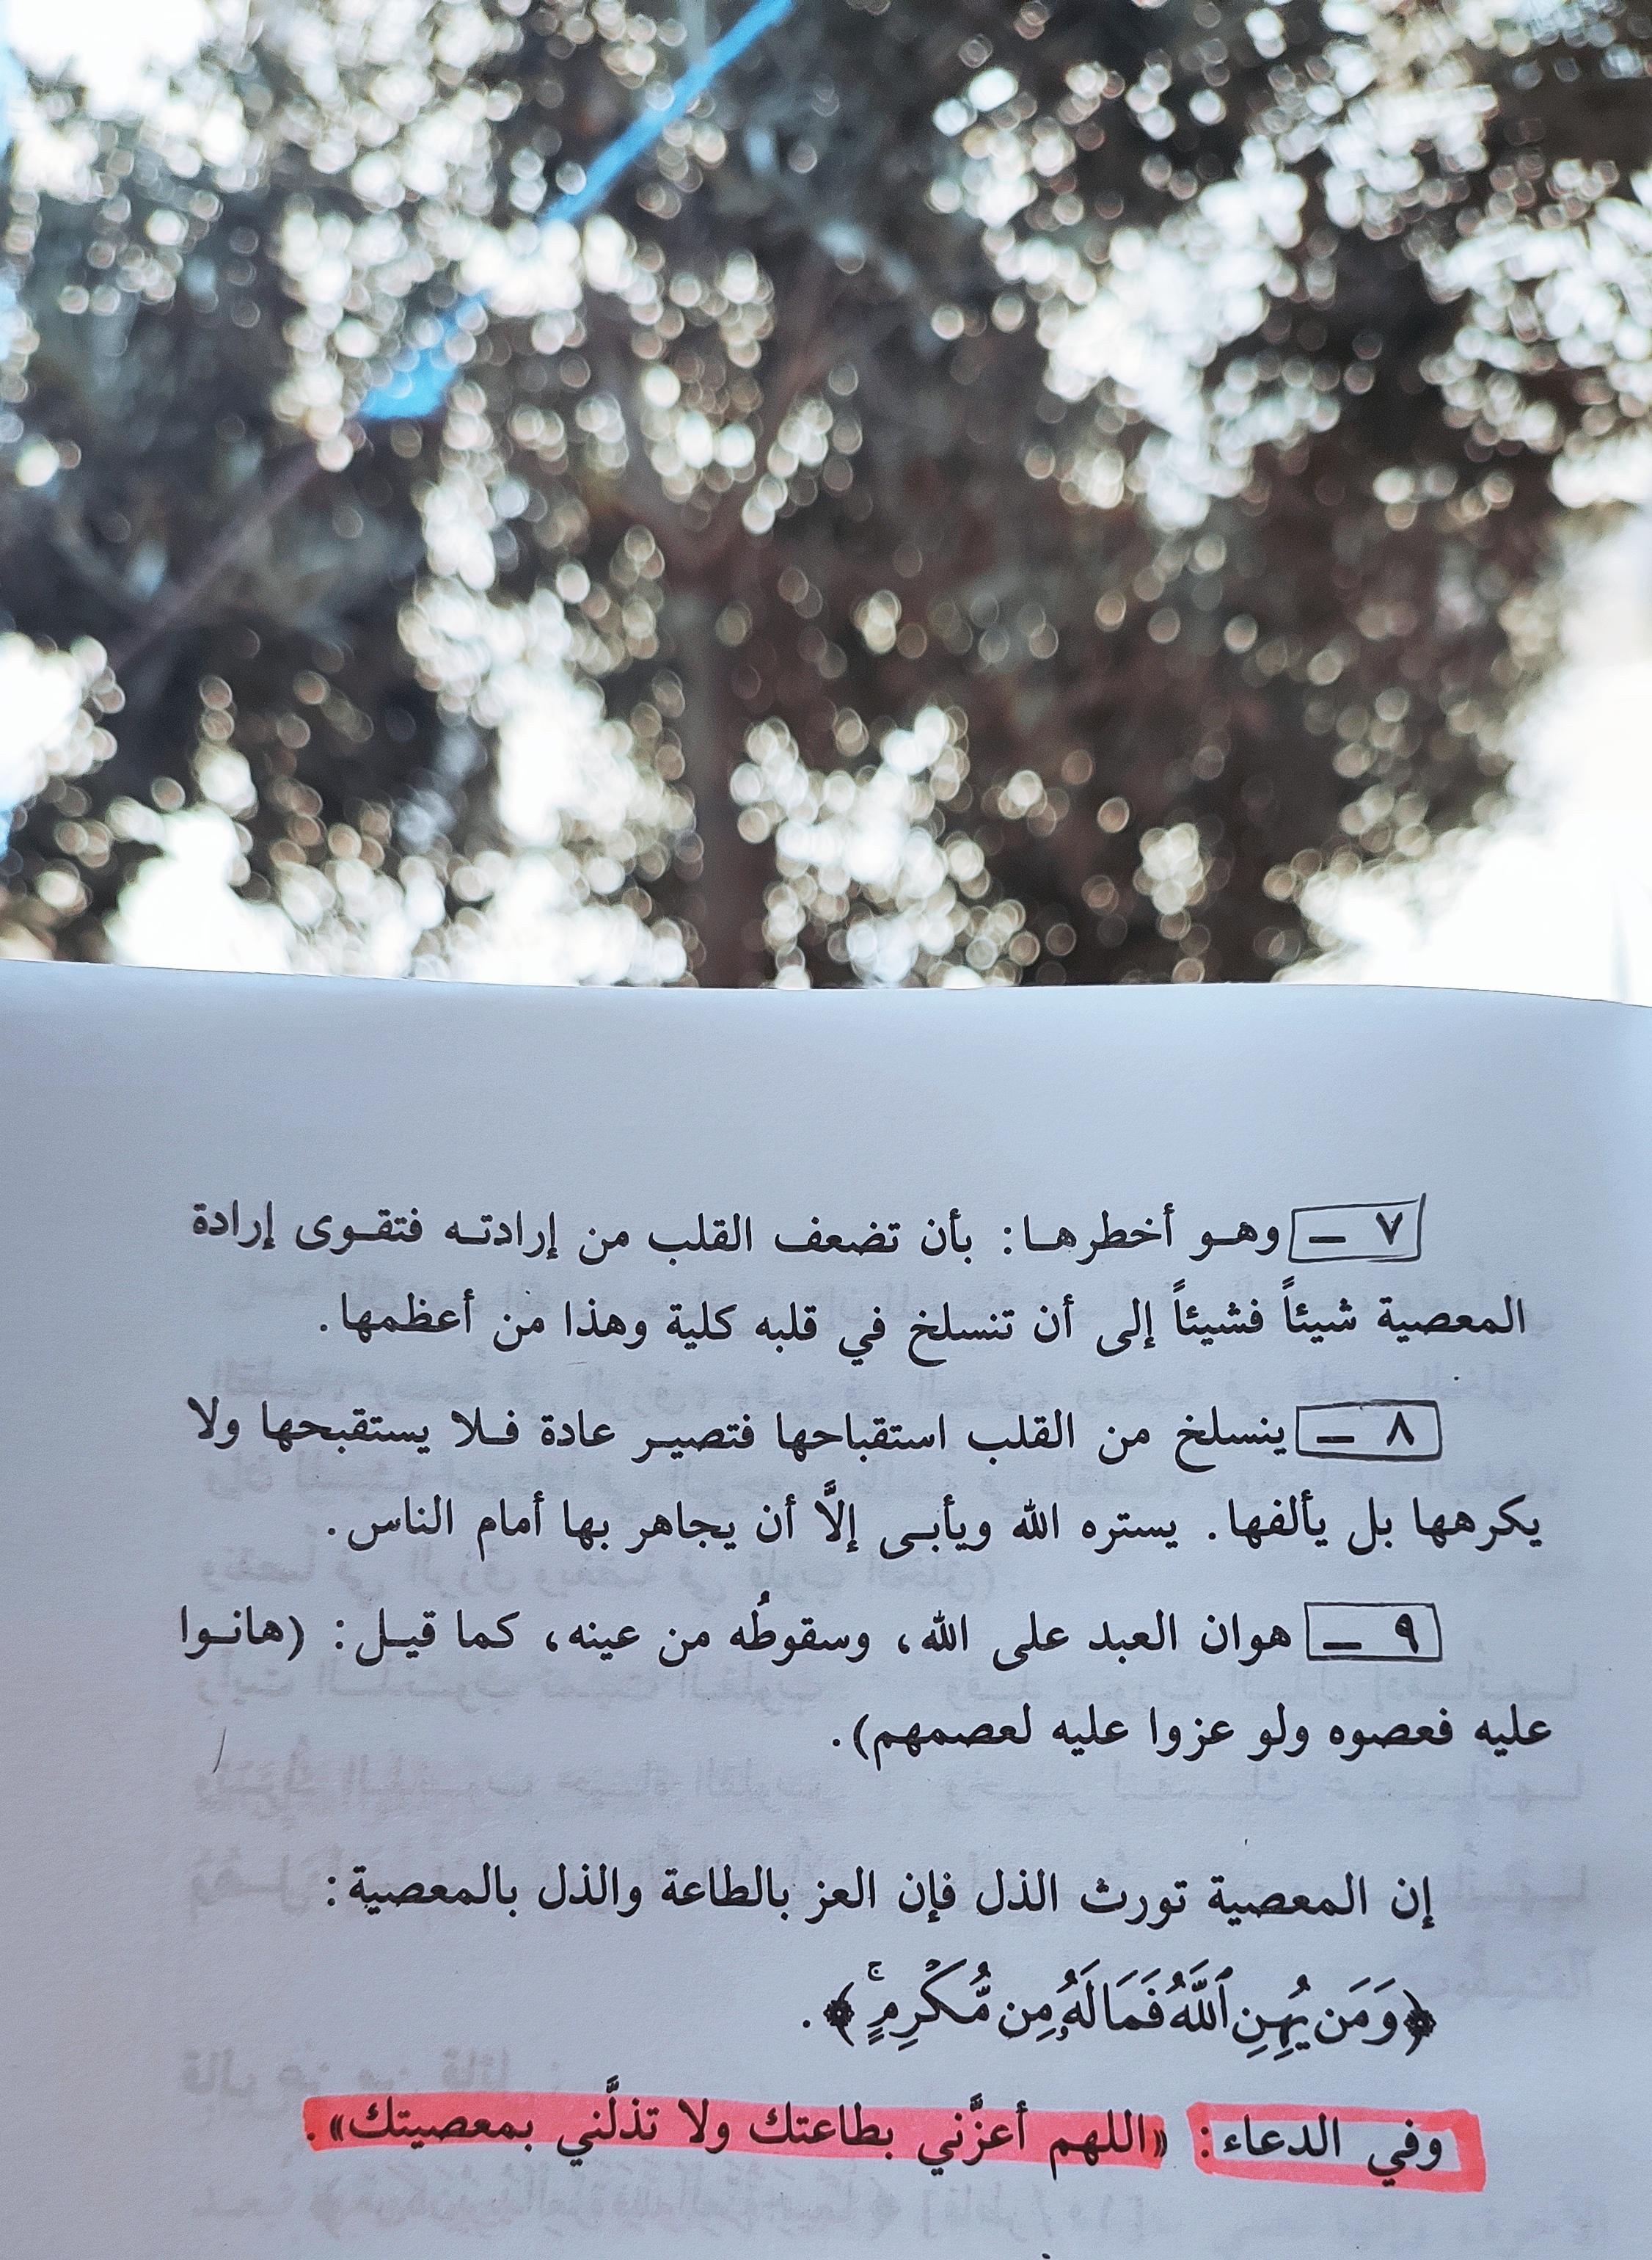 ٧ ـ وهو أخطرها: بأن تضعف القلب من إرادته فتقوى إرادة
المعصية شيئاً فشيئاً إلى أن تنسلخ في قلبه كلية وهذا من أعظمها.
٨ ـ ينسلخ من القلب استقباحها فتصير عادة فلا يستقبحها ولا
يكرهها بل يألفها. يستره الله ويأبى إلَّا أن يجاهر بها أمام الناس.
٩ ـ هوان العبد على الله، وسقوطُه من عينه، كما قيل: (هانوا
عليه فعصوه ولو عزوا عليه لعصمهم).
إن المعصية تورث الذل فإن العز بالطاعة والذل بالمعصية:
﴿وَمَن يُهِنِ ٱللَّهُ فَمَا لَهُۥ مِن مُّكْرِمٍ ۚ﴾.
وفي الدعاء: «اللهم أعزَّني بطاعتك ولا تذلَّني بمعصيتك».